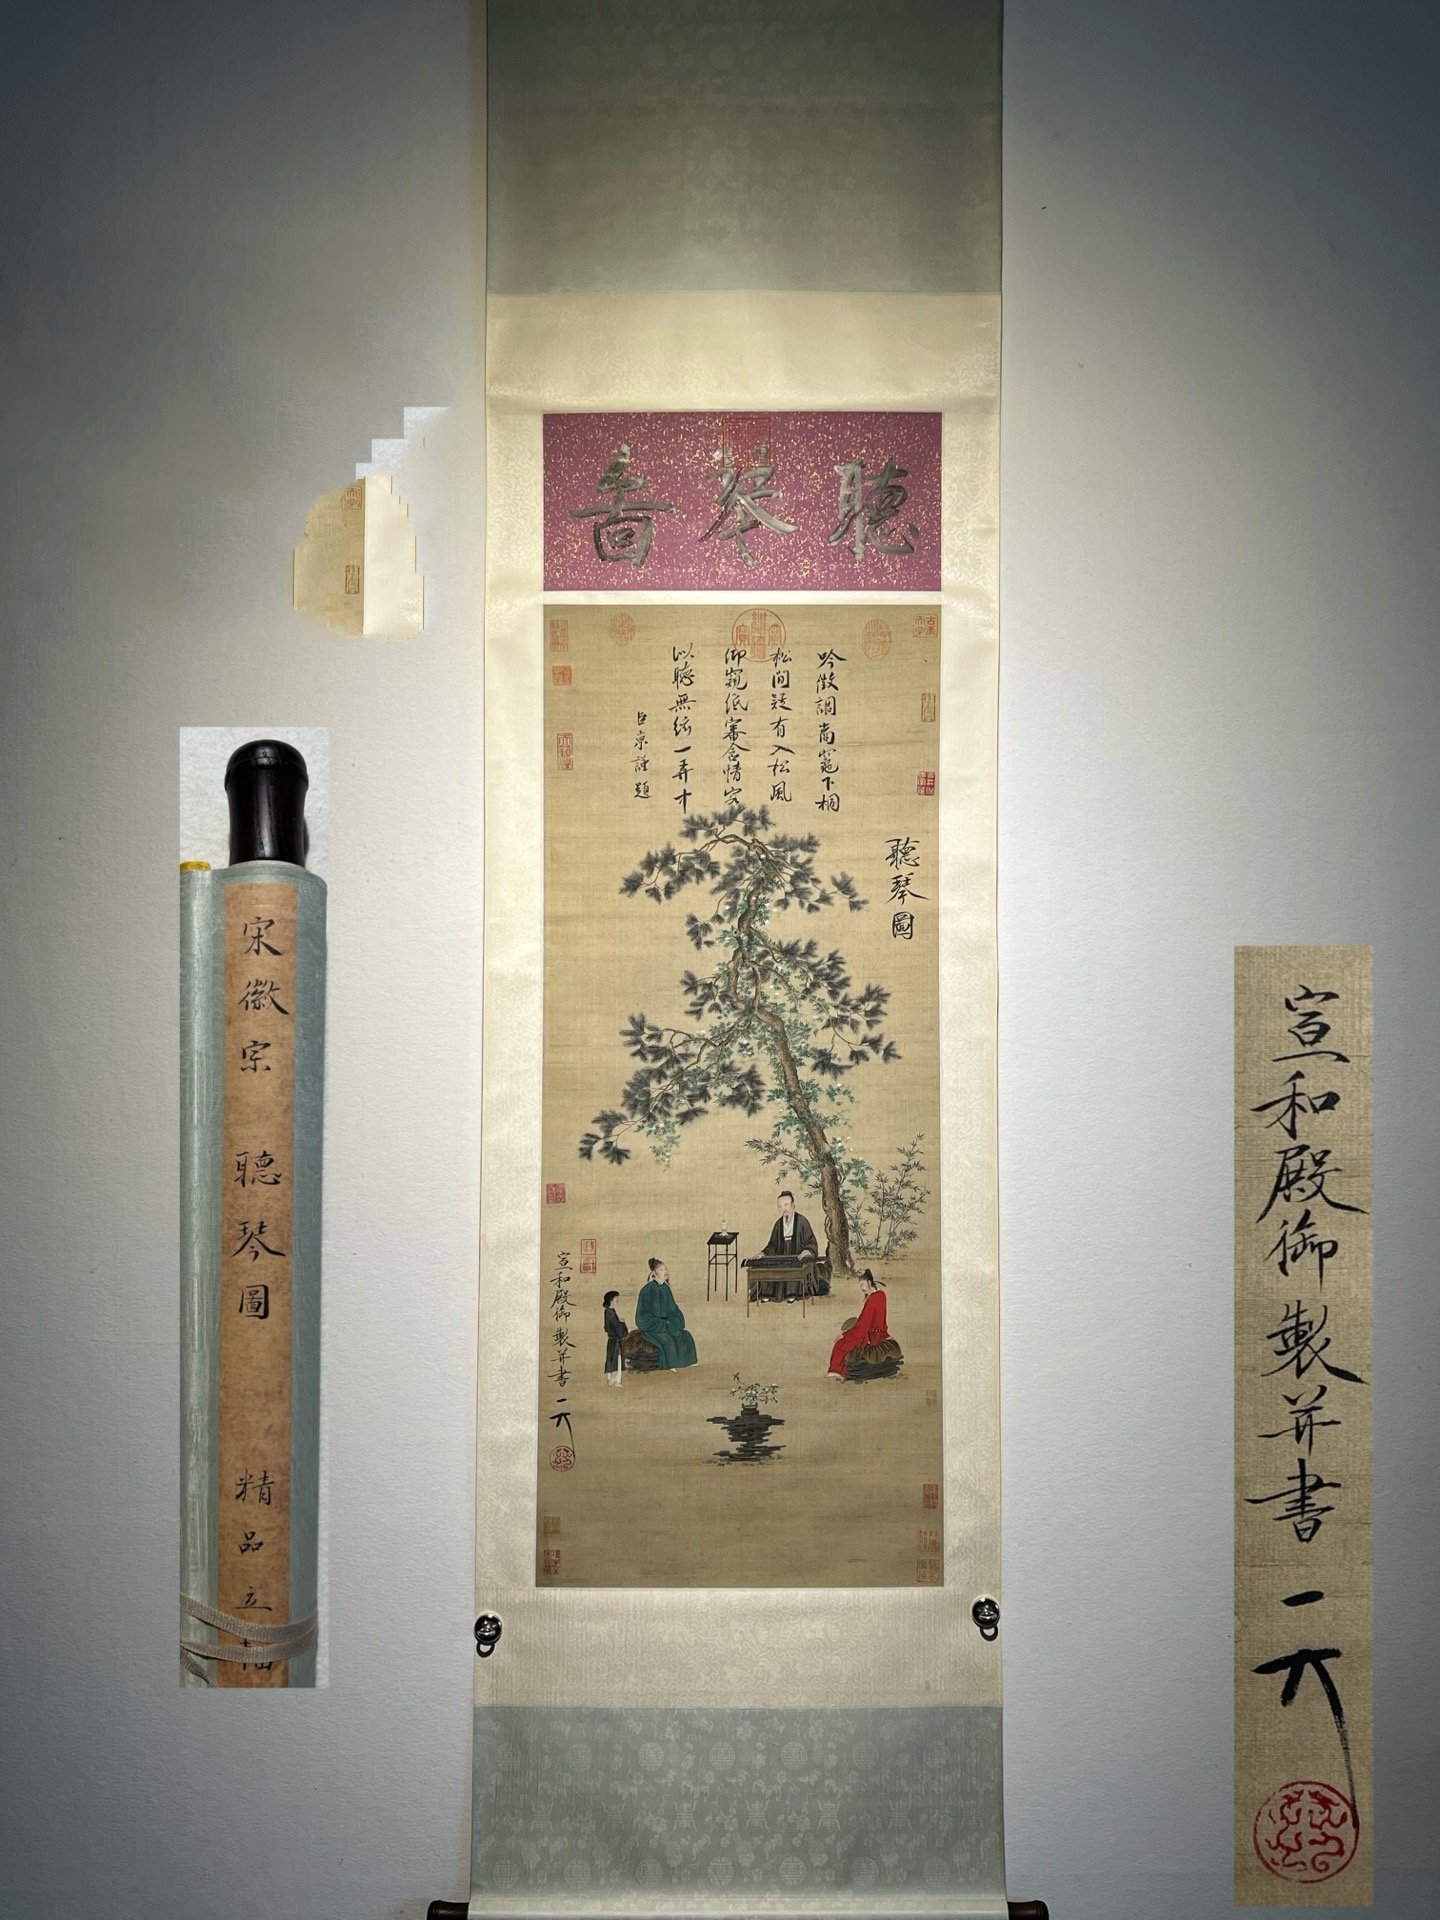 聽琴啚
吟徵調啇竈下桐
松間疑有入松風
仰窺低審含情客
以聽無絃一弄中
臣京謹題
聽琴圖
宣和殿御製并書
宋徽宗 聽琴圖 精品立軸
宣和殿御製并書